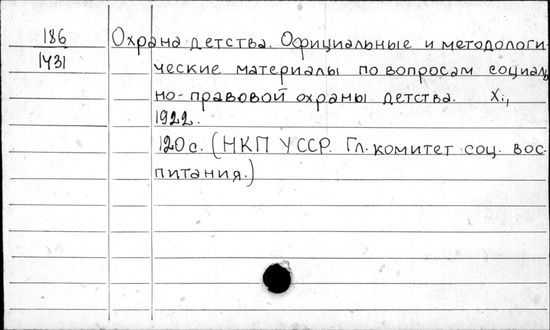 186
1431
Охрана детства. Официальные и методологи-
ческие материалы по вопросам социаль-
но-правовой охраны детства. Х.,
1922.
120 с. (НКП УССР. Гл. комитет соц. вос-
питания.)